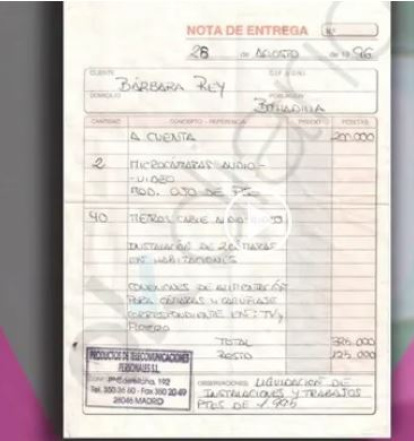 NOTA DE ENTREGA
Nº
26 de AGOSTO de 1996
CLIENTE
BÁRBARA REY
DOMICILIO
POBLACIÓN
BOHADILLA
CANTIDAD CONCEPTO - REFERENCIA PRECIO PESETAS
A CUENTA 200.000
2 MICROCAMARAS AUDIO-
-VIDEO
MOD. OJO DE PEZ
40 METROS CABLE AUDIO
INSTALACIÓN DE
HABITACIONES
CONEXIONES DE ALIMENTACIÓN
PARA CÁMARAS Y CAMUFLAJE
CORRESPONDIENTE EN T.TV y
TOTAL 325.000
RESTO 125.000
PRODUCTOS DE TELECOMUNICACIONES
PERSONALES S.L.
192
Fax 350 20 49
MADRID
OBSERVACIONES: LIQUIDACIÓN DE
INSTALACIONES Y TRABAJOS
PTES DE 1.995